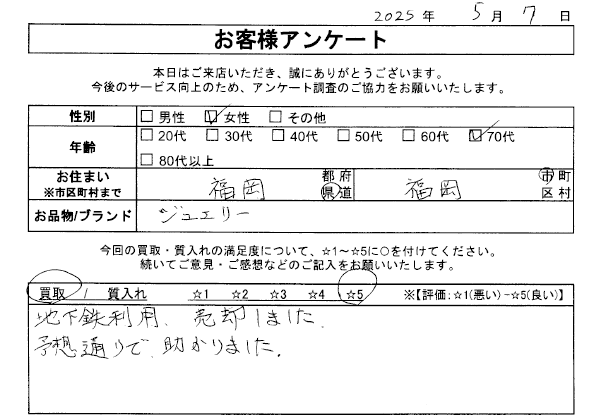 2025年 5月 7日
お客様アンケート
本日はご来店いただき、誠にありがとうございます。
今後のサービス向上のため、アンケート調査のご協力をお願いいたします。
性別 □男性 ☑女性 □その他
年齢 □20代 □30代 □40代 □50代 □60代 ☑70代
□80代以上
お住まい
※市区町村まで
福岡 都府県道 福岡 市町区村
お品物/ブランド ジュエリー
今回の買取・質入れの満足度について、☆1～☆5に○を付けてください。
続いてご意見・ご感想などのご記入をお願いいたします。
買取 / 質入れ ☆1 ☆2 ☆3 ☆4 ☆5 ※【評価:☆1(悪い)-☆5(良い)】
地下鉄利用、売却しました。
予想通りで、助かりました。